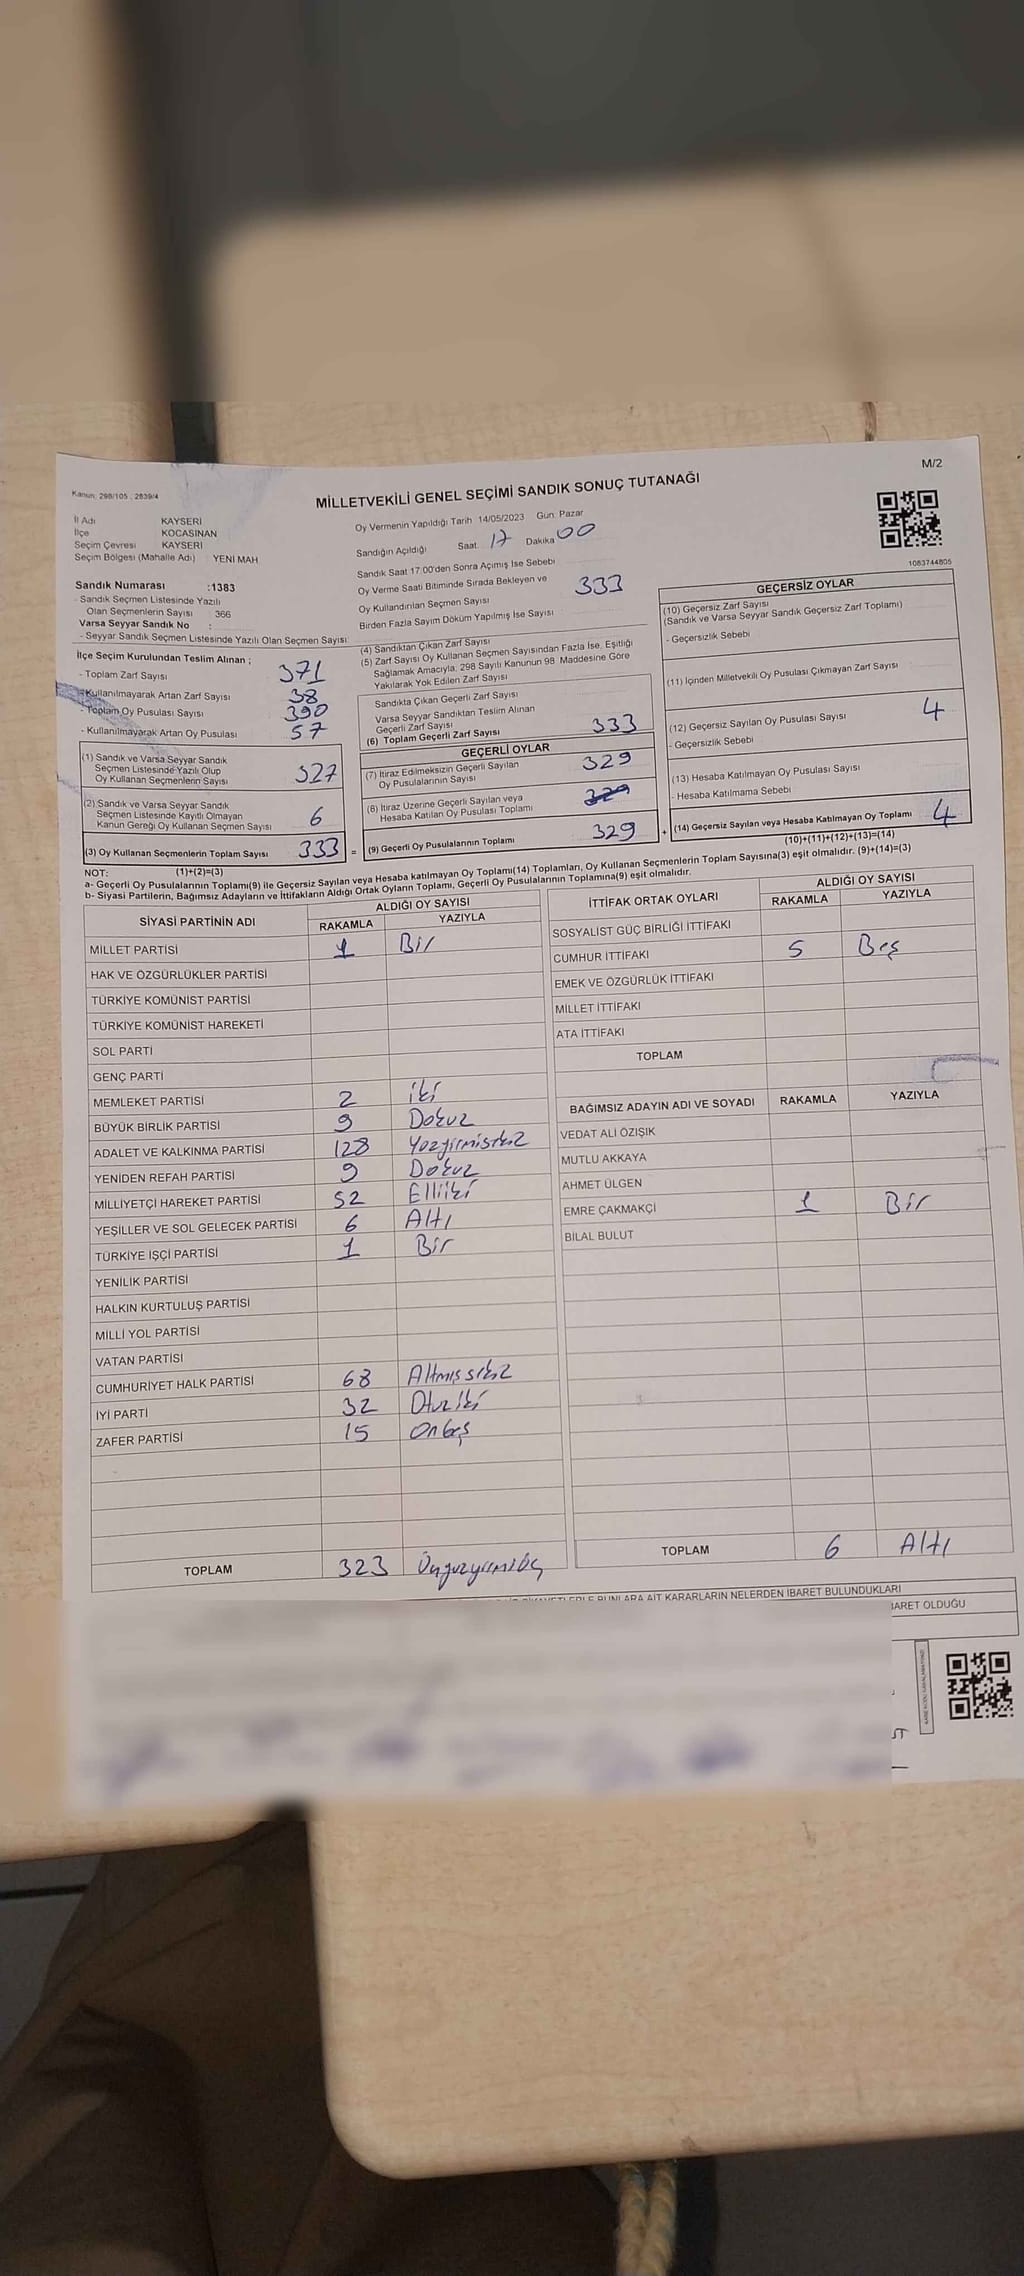 M/2
Kanun: 298/105 , 2839/4
MİLLETVEKİLİ GENEL SEÇİMİ SANDIK SONUÇ TUTANAĞI
İl Adı KAYSERİ
İlçe KOCASİNAN
Seçim Çevresi KAYSERİ
Seçim Bölgesi (Mahalle Adı) YENİ MAH
Oy Vermenin Yapıldığı Tarih 14/05/2023 Gün: Pazar
Sandığın Açıldığı Saat 17 Dakika 00
Sandık Saat 17:00'den Sonra Açımış İse Sebebi
Oy Verme Saati Bitiminde Sırada Bekleyen ve
Oy Kullandırılan Seçmen Sayısı 333
Birden Fazla Sayım Döküm Yapılmış İse Sayısı
1083744805
Sandık Numarası :1383
- Sandık Seçmen Listesinde Yazılı
Olan Seçmenlerin Sayısı : 366
Varsa Seyyar Sandık No :
- Seyyar Sandık Seçmen Listesinde Yazılı Olan Seçmen Sayısı:
İlçe Seçim Kurulundan Teslim Alınan ;
- Toplam Zarf Sayısı 371
- Kullanılmayarak Artan Zarf Sayısı 38
- Toplam Oy Pusulası Sayısı 390
- Kullanılmayarak Artan Oy Pusulası 57
(1) Sandık ve Varsa Seyyar Sandık
Seçmen Listesinde Yazılı Olup
Oy Kullanan Seçmenlerin Sayısı 327
(2) Sandık ve Varsa Seyyar Sandık
Seçmen Listesinde Kayıtlı Olmayan
Kanun Gereği Oy Kullanan Seçmen Sayısı 6
(3) Oy Kullanan Seçmenlerin Toplam Sayısı 333 =
(4) Sandıktan Çıkan Zarf Sayısı
(5) Zarf Sayısı Oy Kullanan Seçmen Sayısından Fazla İse, Eşitliği
Sağlamak Amacıyla, 298 Sayılı Kanunun 98. Maddesine Göre
Yakılarak Yok Edilen Zarf Sayısı
Sandıkta Çıkan Geçerli Zarf Sayısı
Varsa Seyyar Sandıktan Teslim Alınan
Geçerli Zarf Sayısı
(6) Toplam Geçerli Zarf Sayısı 333
GEÇERLİ OYLAR
(7) İtiraz Edilmeksizin Geçerli Sayılan
Oy Pusulalarının Sayısı 329
(8) İtiraz Üzerine Geçerli Sayılan veya
Hesaba Katılan Oy Pusulası Toplamı 329
(9) Geçerli Oy Pusulalarının Toplamı 329 +
GEÇERSİZ OYLAR
(10) Geçersiz Zarf Sayısı
(Sandık ve Varsa Seyyar Sandık Geçersiz Zarf Toplamı)
- Geçersizlik Sebebi
(11) İçinden Milletvekili Oy Pusulası Çıkmayan Zarf Sayısı
(12) Geçersiz Sayılan Oy Pusulası Sayısı 4
- Geçersizlik Sebebi
(13) Hesaba Katılmayan Oy Pusulası Sayısı
- Hesaba Katılmama Sebebi
(14) Geçersiz Sayılan veya Hesaba Katılmayan Oy Toplamı 4
(10)+(11)+(12)+(13)=(14)
NOT: (1)+(2)=(3)
a- Geçerli Oy Pusulalarının Toplamı(9) ile Geçersiz Sayılan veya Hesaba katılmayan Oy Toplamı(14) Toplamları, Oy Kullanan Seçmenlerin Toplam Sayısına(3) eşit olmalıdır. (9)+(14)=(3)
b- Siyasi Partilerin, Bağımsız Adayların ve İttifakların Aldığı Ortak Oyların Toplamı, Geçerli Oy Pusulalarının Toplamına(9) eşit olmalıdır.
SİYASİ PARTİNİN ADI ALDIĞI OY SAYISI
RAKAMLA YAZIYLA
MİLLET PARTİSİ 1 Bir
HAK VE ÖZGÜRLÜKLER PARTİSİ
TÜRKİYE KOMÜNİST PARTİSİ
TÜRKİYE KOMÜNİST HAREKETİ
SOL PARTİ
GENÇ PARTİ
MEMLEKET PARTİSİ 2 iki
BÜYÜK BİRLİK PARTİSİ 9 Dokuz
ADALET VE KALKINMA PARTİSİ 128 Yüzyirmisekiz
YENİDEN REFAH PARTİSİ 9 Dokuz
MİLLİYETÇİ HAREKET PARTİSİ 52 Elliiki
YEŞİLLER VE SOL GELECEK PARTİSİ 6 Altı
TÜRKİYE İŞÇİ PARTİSİ 1 Bir
YENİLİK PARTİSİ
HALKIN KURTULUŞ PARTİSİ
MİLLİ YOL PARTİSİ
VATAN PARTİSİ
CUMHURİYET HALK PARTİSİ 68 Altmışsekiz
İYİ PARTİ 32 Otuziki
ZAFER PARTİSİ 15 Onbeş
TOPLAM 323 Üçyüzyirmiüç
İTTİFAK ORTAK OYLARI ALDIĞI OY SAYISI
RAKAMLA YAZIYLA
SOSYALİST GÜÇ BİRLİĞİ İTTİFAKI
CUMHUR İTTİFAKI 5 Beş
EMEK VE ÖZGÜRLÜK İTTİFAKI
MİLLET İTTİFAKI
ATA İTTİFAKI
TOPLAM
BAĞIMSIZ ADAYIN ADI VE SOYADI RAKAMLA YAZIYLA
VEDAT ALİ ÖZIŞIK
MUTLU AKKAYA
AHMET ÜLGEN
EMRE ÇAKMAKÇİ 1 Bir
BİLAL BULUT
TOPLAM 6 Altı
BUNLARA AİT KARARLARIN NELERDEN İBARET BULUNDUKLARI
BARET OLDUĞU